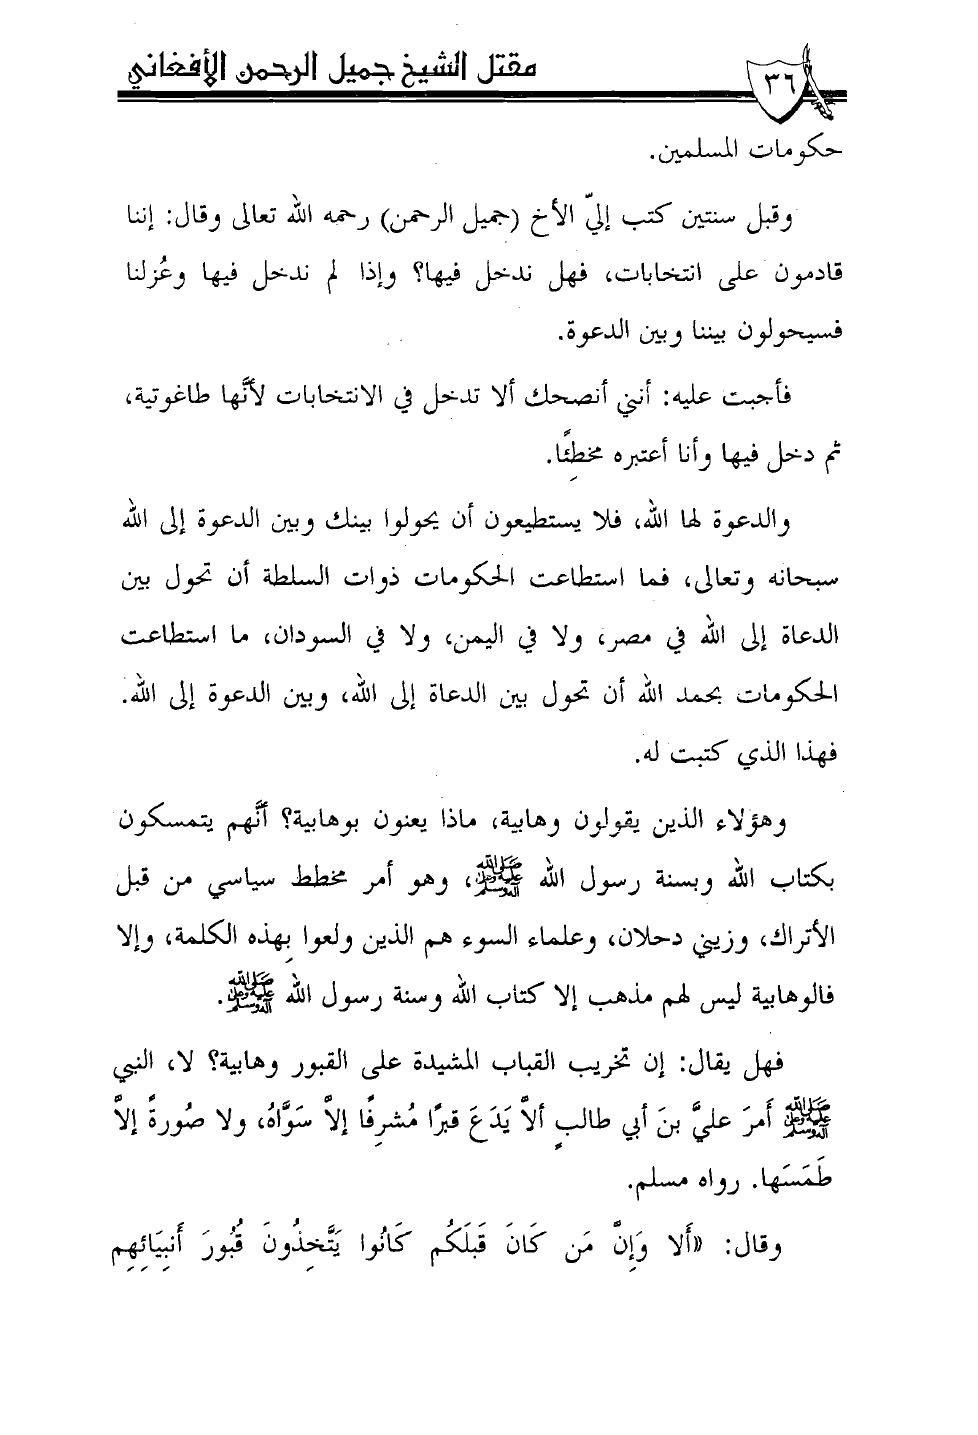 مقتل الشيخ جميل الرحمن الأفغاني
٣٦
حكومات المسلمين.
وقبل سنتين كتب إليّ الأخ (جميل الرحمن) رحمه الله تعالى وقال: إننا
قادمون على انتخابات، فهل ندخل فيها؟ وإذا لم ندخل فيها وعُزلنا
فسيحولون بيننا وبين الدعوة.
فأجبت عليه: أنني أنصحك ألا تدخل في الانتخابات لأنَّها طاغوتية،
ثم دخل فيها وأنا أعتبره مخطِئًا.
والدعوة لها الله، فلا يستطيعون أن يحولوا بينك وبين الدعوة إلى الله
سبحانه وتعالى، فما استطاعت الحكومات ذوات السلطة أن تحول بين
الدعاة إلى الله في مصر، ولا في اليمن، ولا في السودان، ما استطاعت
الحكومات بحمد الله أن تحول بين الدعاة إلى الله، وبين الدعوة إلى الله.
فهذا الذي كتبت له.
وهؤلاء الذين يقولون وهابية، ماذا يعنون بوهابية؟ أنَّهم يتمسكون
بكتاب الله وبسنة رسول الله ﷺ، وهو أمر مخطط سياسي من قبل
الأتراك، وزيني دحلان، وعلماء السوء هم الذين ولعوا بِهذه الكلمة، وإلا
فالوهابية ليس لهم مذهب إلا كتاب الله وسنة رسول الله ﷺ.
فهل يقال: إن تخريب القباب المشيدة على القبور وهابية؟ لا، النبي
ﷺ أَمرَ عليَّ بنَ أبي طالبٍ ألاَّ يَدَعَ قبرًا مُشرِفًا إلاَّ سَوَّاهُ، ولا صُورةً إلاَّ
طَمَسَها. رواه مسلم.
وقال: «أَلا وَإِنَّ مَن كَانَ قَبلَكُم كَانُوا يَتَّخِذُونَ قُبُورَ أَنبِيَائِهِم